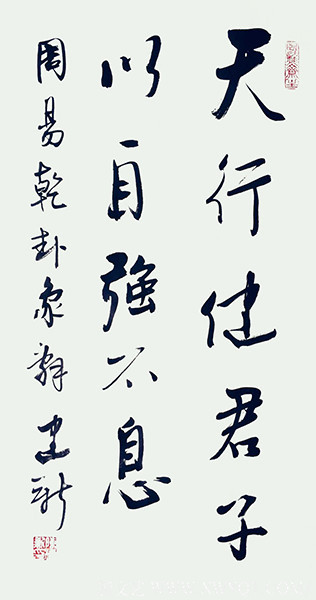 天行健君子
以自强不息
周易乾卦象辞建新